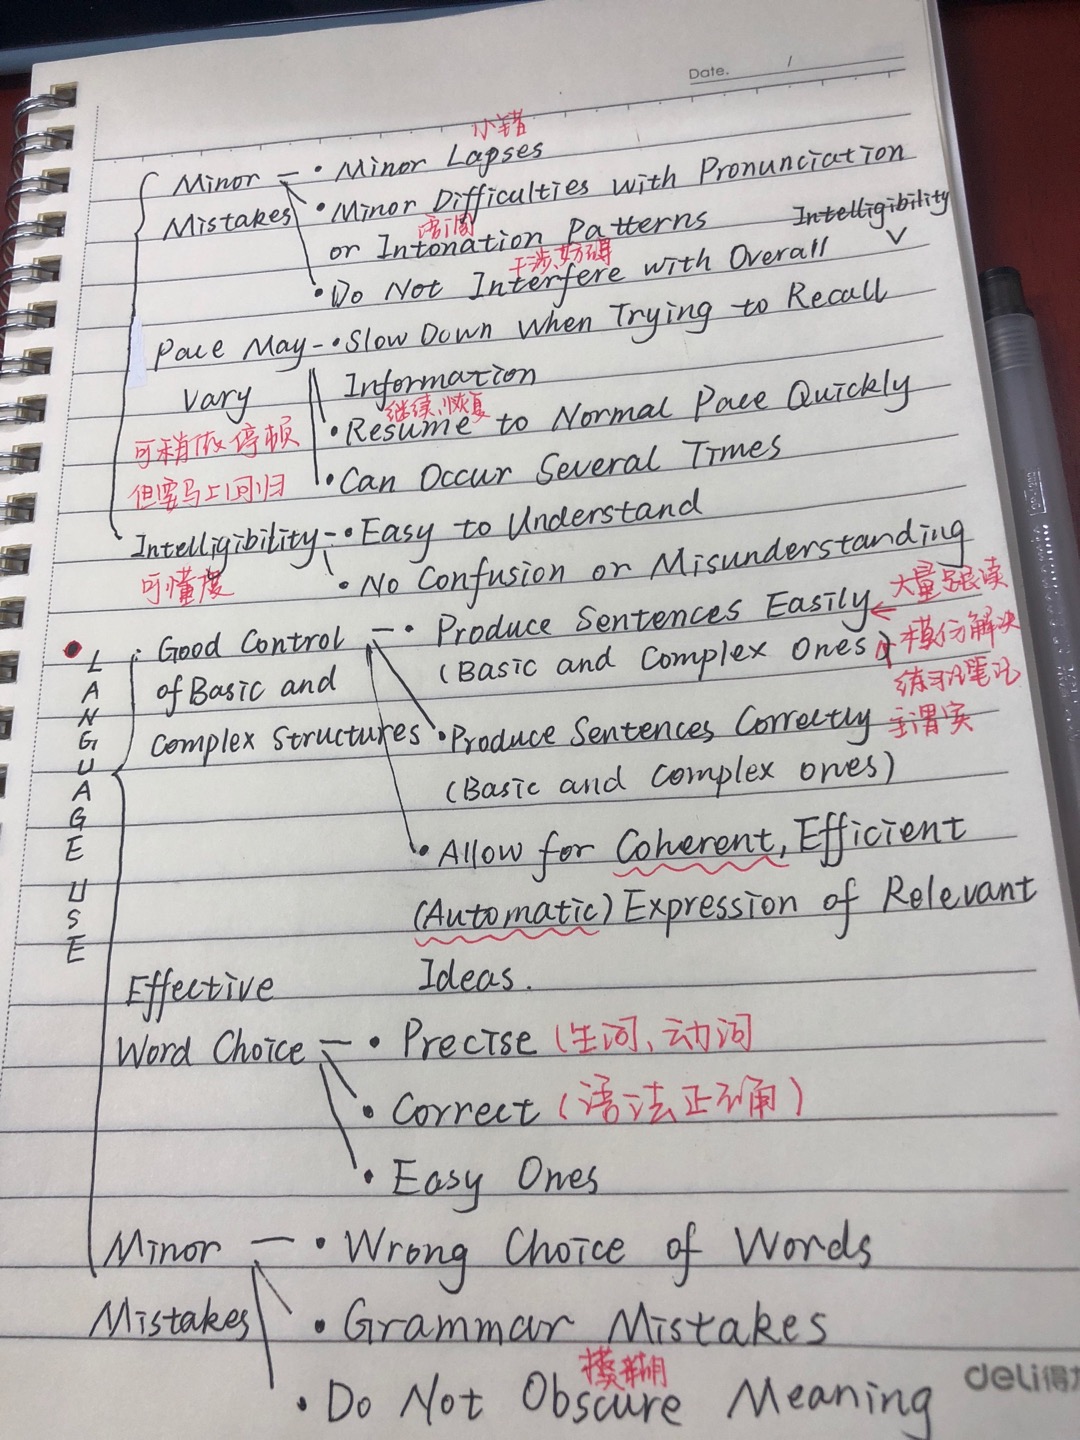 Date. /
小错
Minor - • Minor Lapses
Mistakes • Minor Difficulties with Pronunciation
语调
or Intonation Patterns Intelligibility
干涉、妨碍
• Do Not Interfere with Overall
Pace May - • Slow Down When Trying to Recall
Vary Information
继续、恢复
可稍做停顿 • Resume to Normal Pace Quickly
但要马上回归 • Can Occur Several Times
Intelligibility - • Easy to Understand
可懂度 • No Confusion or Misunderstanding
LANGUAGE USE
Good Control - • Produce Sentences Easily ← 大量跟读
of Basic and (Basic and Complex Ones) 模仿解决
练习
Complex Structures • Produce Sentences Correctly 主谓宾
(Basic and Complex ones)
• Allow for Coherent, Efficient
(Automatic) Expression of Relevant
Ideas.
Effective
Word Choice - • Precise (生词、动词
• Correct (语法正确)
• Easy Ones
Minor - • Wrong Choice of Words
Mistakes • Grammar Mistakes
模糊
• Do Not Obscure Meaning
deli得力